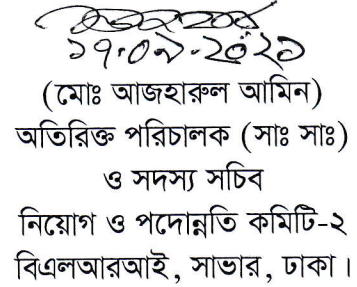 ১৭.০৯.২০২১
(মোঃ আজহারুল আমিন)
অতিরিক্ত পরিচালক (সাঃ সাঃ)
ও সদস্য সচিব
নিয়োগ ও পদোন্নতি কমিটি-২
বিএলআরআই, সাভার, ঢাকা।